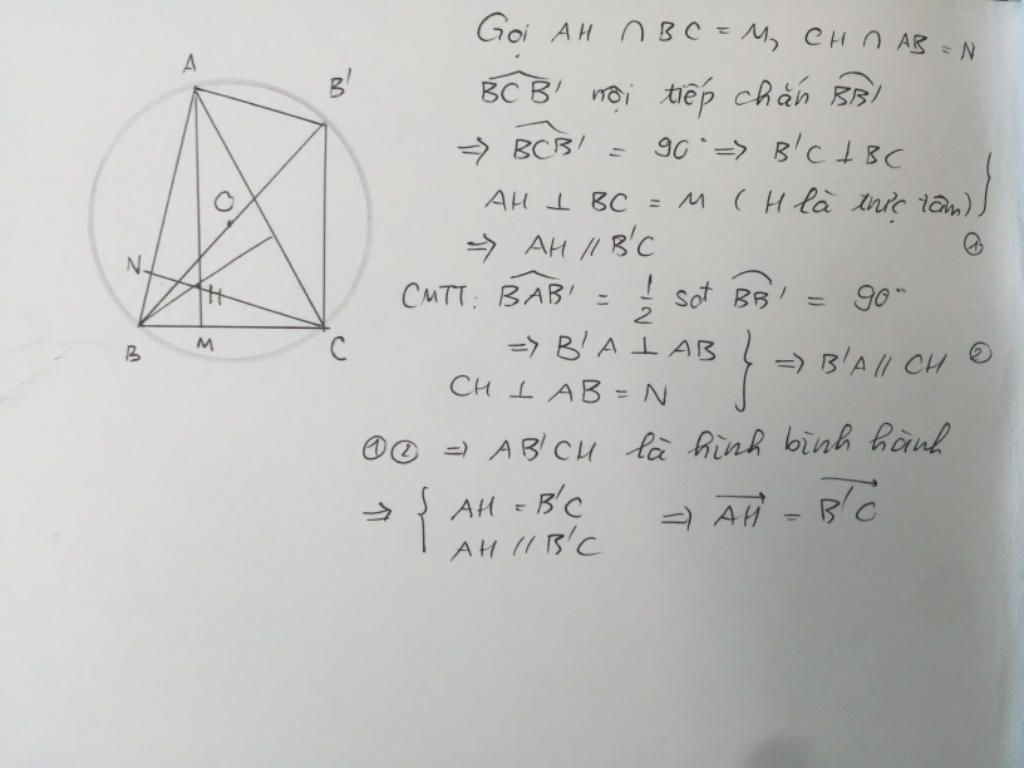 A
B'
O
N
H
B
M
C
Gọi AH ∩ BC = M, CH ∩ AB = N
\widehat{BCB'} nội tiếp chắn \overset{\frown}{BB'}
=> \widehat{BCB'} = 90° => B'C ⊥ BC
AH ⊥ BC = M ( H là trực tâm) }
=> AH // B'C ①
CMTT: \widehat{BAB'} = \frac{1}{2} sđ \overset{\frown}{BB'} = 90°
=> B'A ⊥ AB } => B'A // CH ②
CH ⊥ AB = N
①② => AB'CH là hình bình hành
=> { AH = B'C => \overrightarrow{AH} = \overrightarrow{B'C}
AH // B'C